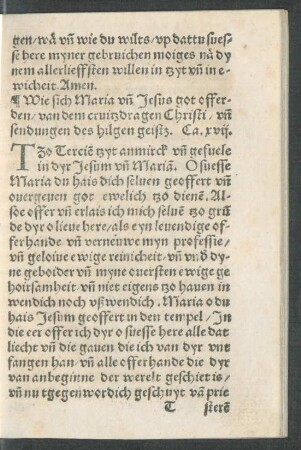 gen/wā vñ wie du wilts/vp dattu sues-
se here myner gebruichen moiges nā dy
nem allerlieffsten willen in tzyt vñ in e-
wicheit. Amen.
¶ Wie sich Maria vñ Jesus got offer-
den/van dem cruitzdragen Christi/vñ
sendungen des hilgen geistz. Ca. xvij.
TZo Terciē tzyt anmirck vñ gefuele
in dyr Jesum vñ Mariā. O suesse
Maria du hais dich seluen geoffert vñ
ouergeuen got ewelich tzo dienē. Al-
soe offer vñ erlais ich mich seluē tzo grū
de dyr o lieue here/als eyn leuendige of-
ferhande vñ verneuwe myn professie/
vñ geloiue ewige reinicheit vñ vnd dyne
geboider vñ myne ouersten ewige ge
hoirsamheit vñ niet eigens tzo hauen in
wendich noch vßwendich. Maria o du
hais Jesum geoffert in den tempel/In
die eer offer ich dyr o suesse here alle dat
liecht vñ die gauen die ich van dyr vnt
fangen han vñ alle offerhande die dyr
van anbeginne der werelt geschiet is/
vñ nu tgegenwordich geschuyt vā prie
T sterē